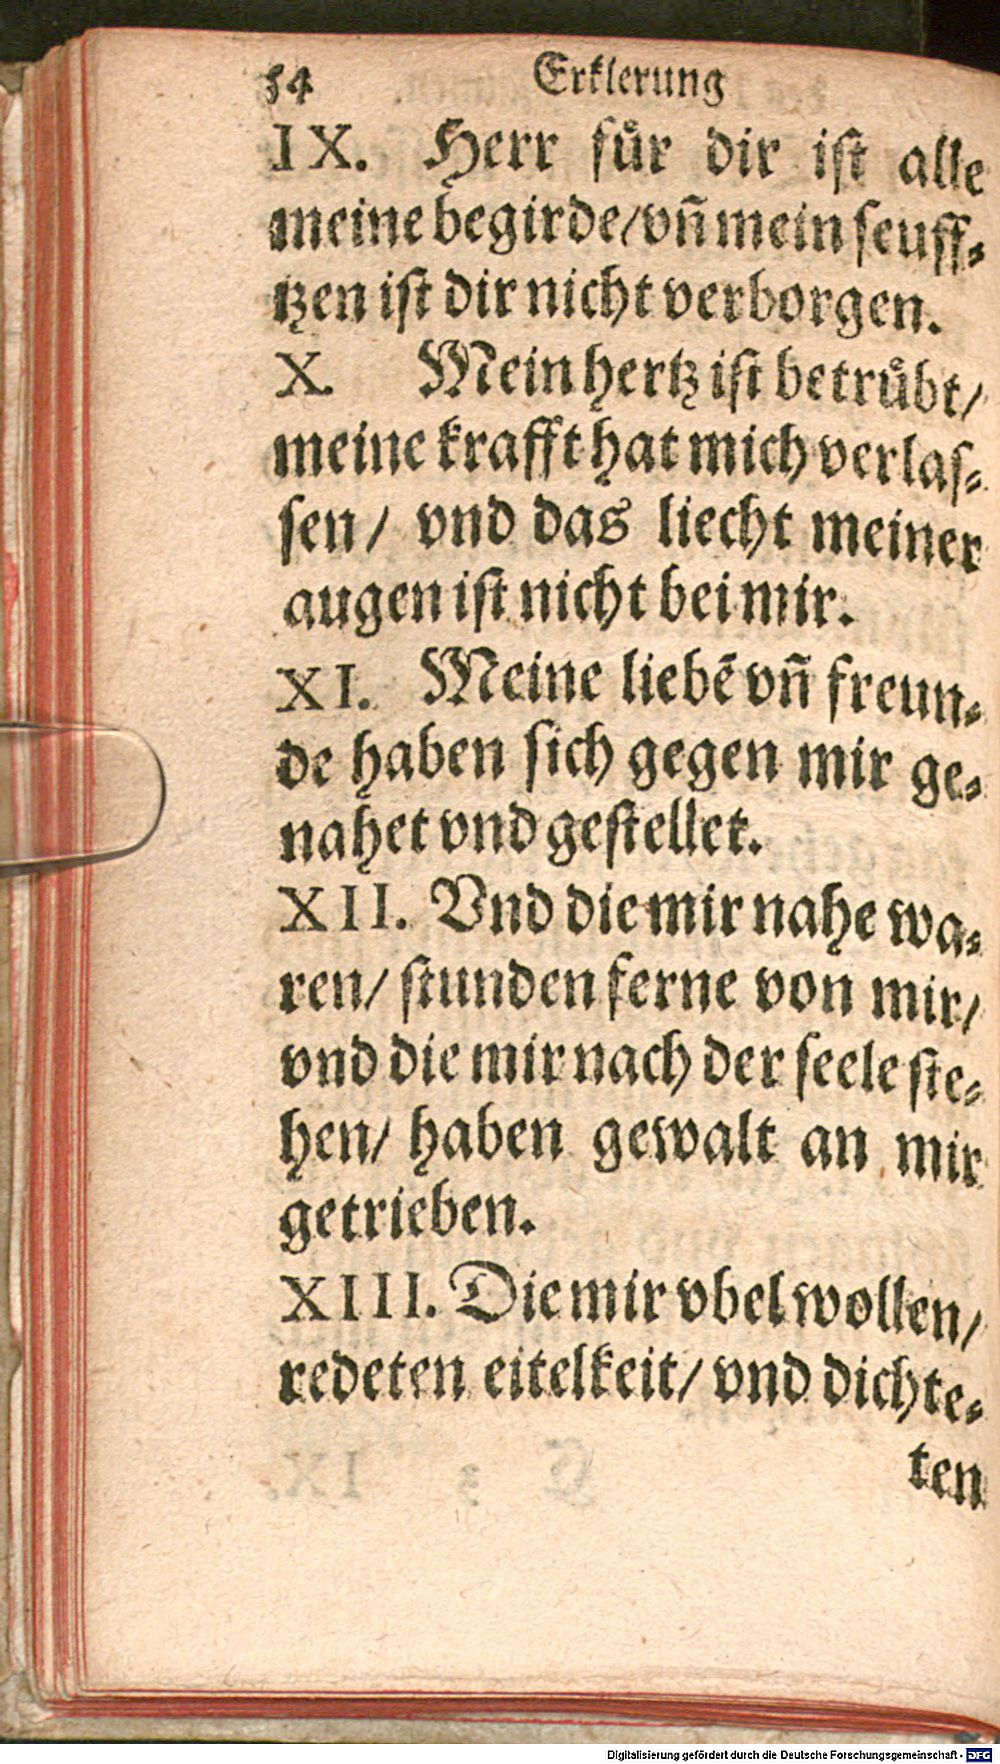 54 Erklerung
IX. Herr fuͤr dir iſt alle
meine begirde/vnñ mein ſeuff⸗
tzen iſt dir nicht verborgen.
X. Mein hertz iſt betruͤbt/
meine krafft hat mich verlaſ⸗
ſen/ vnd das liecht meiner
augen iſt nicht bei mir.
XI. Meine liebẽ vñ freun⸗
de haben ſich gegen mir ge⸗
nahet vnd geſtellet.
XII. Vnd die mir nahe wa⸗
ren/ ſtunden ferne von mir/
vnd die mir nach der ſeele ſte⸗
hen/ haben gewalt an mir
getrieben.
XIII. Die mir vbel wollen/
redeten eitelkeit/ vnd dichte⸗
ten
Digitalisierung gefördert durch die Deutsche Forschungsgemeinschaft - DFG